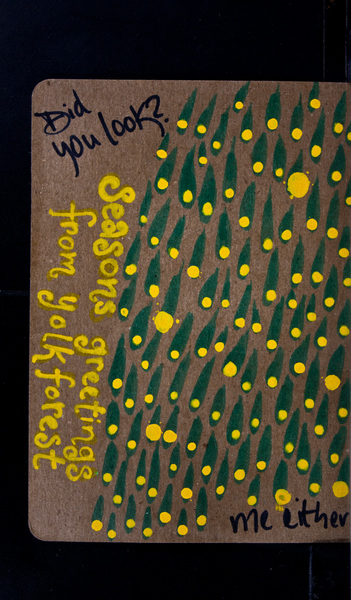 Did
you look?
Seasons greetings
from yolk forest
me either